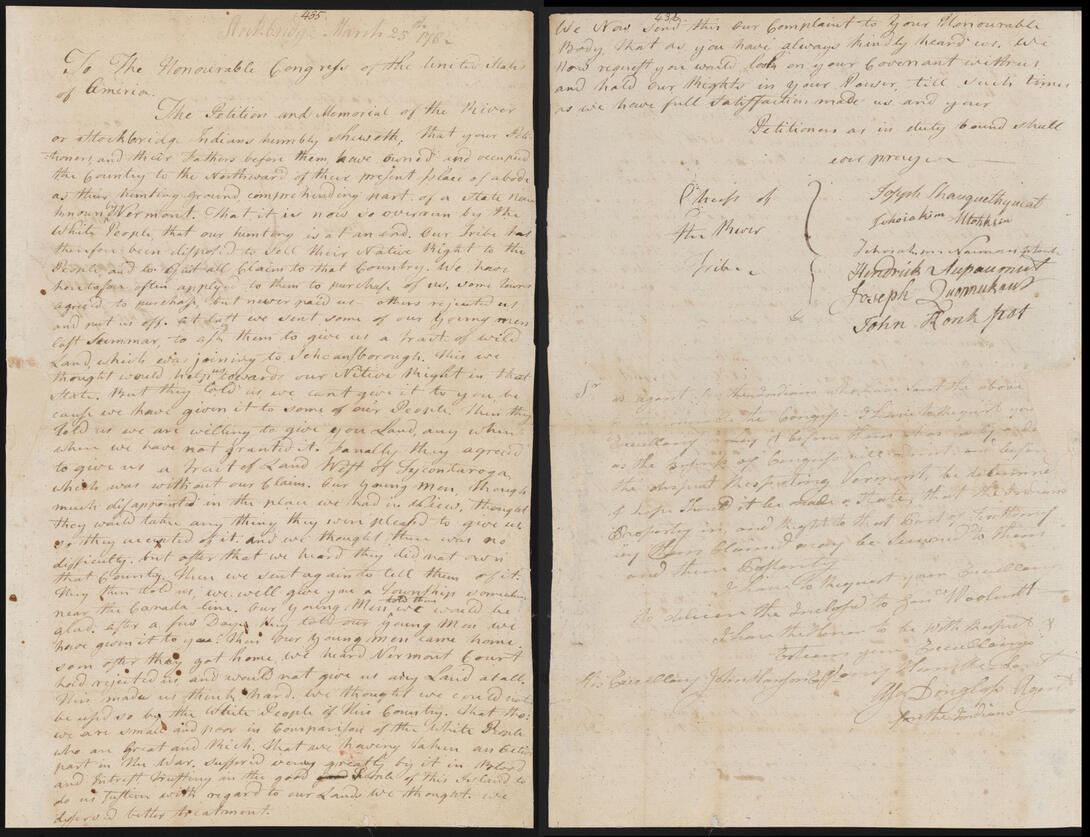 435
Stockbridge March 25th 1782
To The Honourable Congress of the United States
of America.
The Petition and Memorial of the River
or Stockbridge Indians humbly sheweth; that your Peti-
tioners, and their Fathers before them, have owned and occupied
the Country to the Northward of their present place of abode
as their hunting ground comprehending part of a State now
known Vermont. That it is now so overrun by the
White People that our hunting is at an end. Our Tribe has
therefore been disposed to sell their Native Right to the
People, and to Quit all Claim to that Country. We have
heretofore often applyd to them to purchase of us, some Towns
agreed to purchase but never paid us – others rejected us
and put us off. at last we sent some of our Young men
last Summar, to ask them to give us a tract of wild
Land, which was joining to. This we
thought would help us towards our Native Right in that
State. But they told us we cant give it to you be
cause we have given it to some of our People. Then they
told us we are willing to give you Land, any where
where we have not granted it. finally they agreed
to give us a tract of Land West of Tyconturoga,
which was without our Claim. Our young men, though
much disappointed in the place we had in View, thought
they would take any thing they were pleased to give us,
so they accepted of it. and we thought there was no
difficulty. but after that we heard they did not own
that Country. Then we sent again to tell them of it.
They then told us, we will give you a Township somewhere
near the Canada line. Our young Men told them we would be
glad. after a few Days they told our Young men we
have given it to you. Then Our Young men came home
soon after they got home, we heard Vermont Court
had rejected us and would not give us any Land at all.
This made us think hard. We thought we could not
be used so by the White People of this Country. That tho
we are small and poor in Comparison of the White People
who are Great and Rich. That we having taken an Active
part in the War. Suffered very greatly by it in Blood
and Intrest Trusting in the good People of this Island to
do us Justice with regard to our Lands We thought. we
deserved better treatment.
436
We Now send this Our Complaint to Your Honourable
Body that as you have always kindly heard us. We
now request you would look on your Covenant with us
and hold our Rights in your Power, till such times
as we have full Satisfaction made us and your
Petitioners as in duty bound shall
ever pray
Chiefs of
the River
Tribe
Joseph Shauquethqueat
Jehoiakim Mtohksin
Hendrick Aupaumut
Joseph Quonukaut
John Konkpot
Sr
as agent for the Indians who have sent the above
to Congress I have to Request you
Excellency lay it before them
as the of Congress will and before
the dispute Respecting Vermont, be determined
I hope Should it be made a State, that the Indians
Property in, and Right to that Part of Territory
by them Claimed may be Secured to them
and their Posterity
I have to Request your Excellency
to deliver the inclosed to Genl Woolcott
I have the Honor to be with Respect &
Esteem your Excellencys
His Excellency John Hanson Esqr
Agent
for the Indians